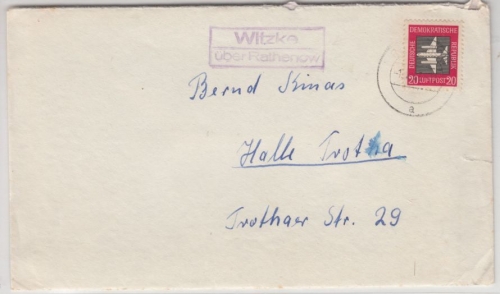 Witzke
über Rathenow
DEUTSCHE DEMOKRATISCHE REPUBLIK
20 LUFTPOST 20
a
Bernd Kinas
Halle Trotha
Trothaer Str. 29